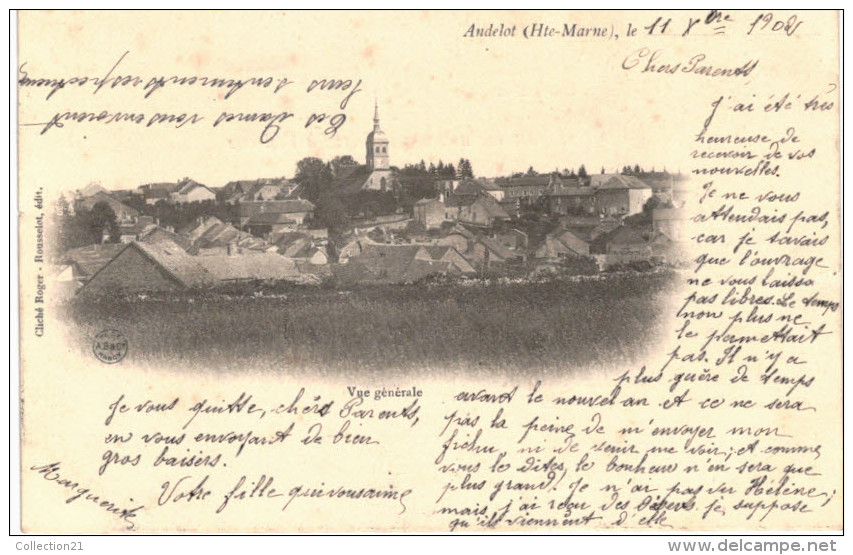 Andelot (Hte-Marne), le 11 Xbre 1902
Chers Parents
J'ai été très
heureuse de
recevoir de vos
nouvelles.
Je ne vous
attendais pas,
car je savais
que l'ouvrage
ne vous laissa
pas libres. Le temps
non plus ne
le permettait
pas. Il n'y a
plus guère de temps
avant le nouvel an et ce ne sera
pas la peine de m'envoyer mon
fichu, ni de venir me voir; et comme
vous le dites, le bonheur n'en sera que
plus grand. Je n'ai pas vu Hélène;
mais, j'ai reçu des je suppose
qu'ils viennent d'elle
Je vous quitte, chers Parents,
en vous envoyant de bien
gros baisers.
Votre fille qui vous aime
Marguerite
Ces Dames vous envoient
leurs sentiments respectueux
Vue générale
Cliché Roger - Rousselot, édit.
Collection21
www.delcampe.net